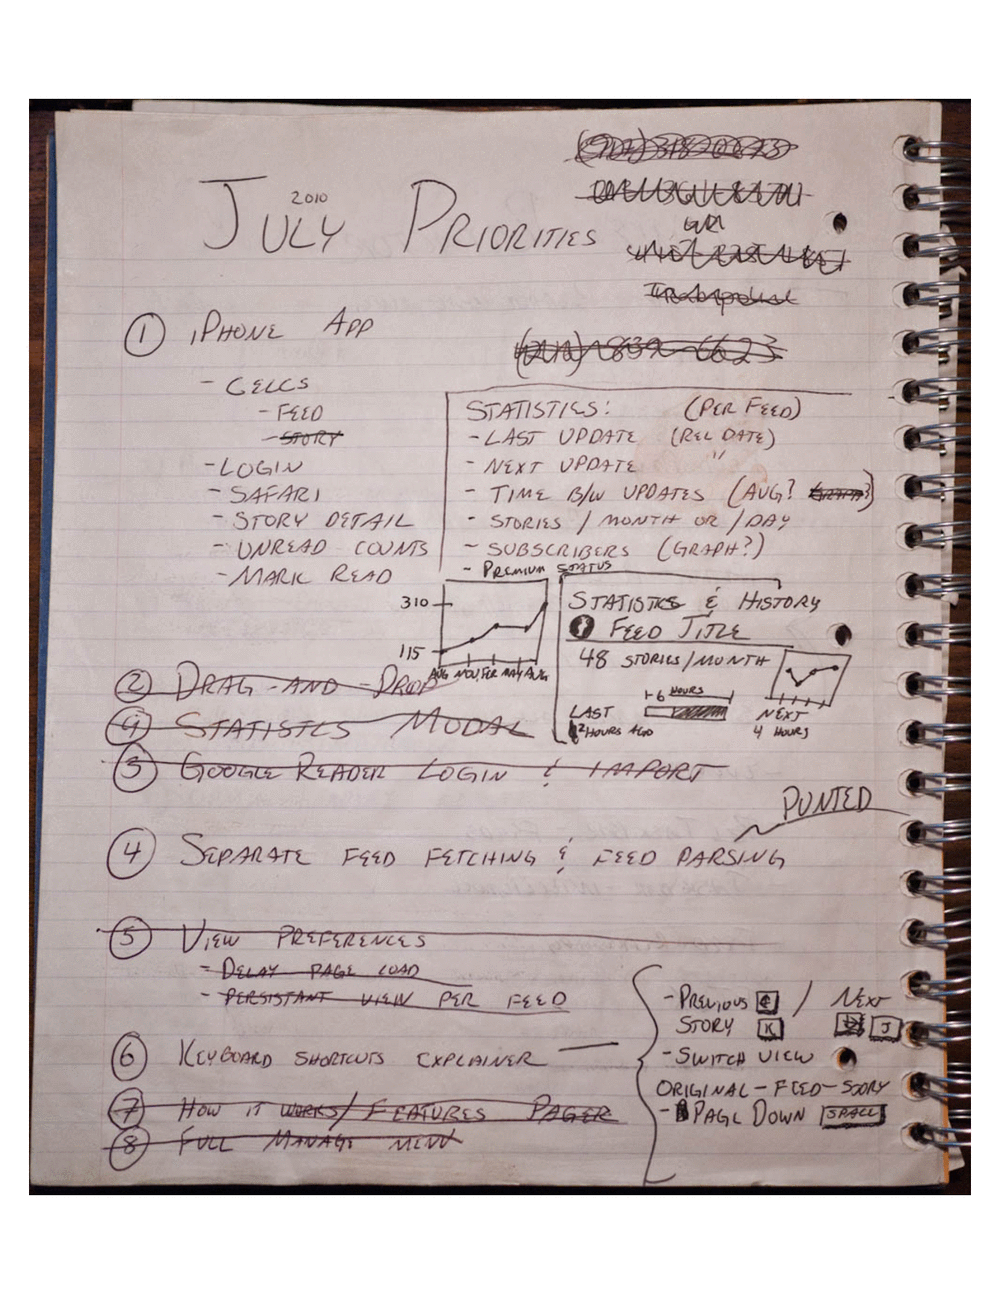 July 2010 Priorities
① iPhone App
- Cells
- Feed
- Story
- Login
- Safari
- Story Detail
- Unread Counts
- Mark Read
Statistics: (Per Feed)
- Last Update (Rel Date)
- Next Update "
- Time b/w Updates (Avg? Graph?)
- Stories / month or /day
- Subscribers (Graph?)
- Premium Status
310
115
Aug Nov Feb May Aug
Statistics & History
Feed Title
48 Stories/Month
6 Hours
Last
2 Hours Ago
Next
4 Hours
② Drag-and-Drop
Statistics Modal
③ Google Reader Login & Import
Punted
④ Separate Feed Fetching & Feed Parsing
⑤ View Preferences
- Delay Page Load
- Persistant View Per Feed
⑥ Keyboard Shortcuts Explainer
- Previous / Next
Story K J
- Switch View
Original-Feed-Story
- Page Down Space
⑦ How it Works/Features Pager
⑧ Full Manage Menu